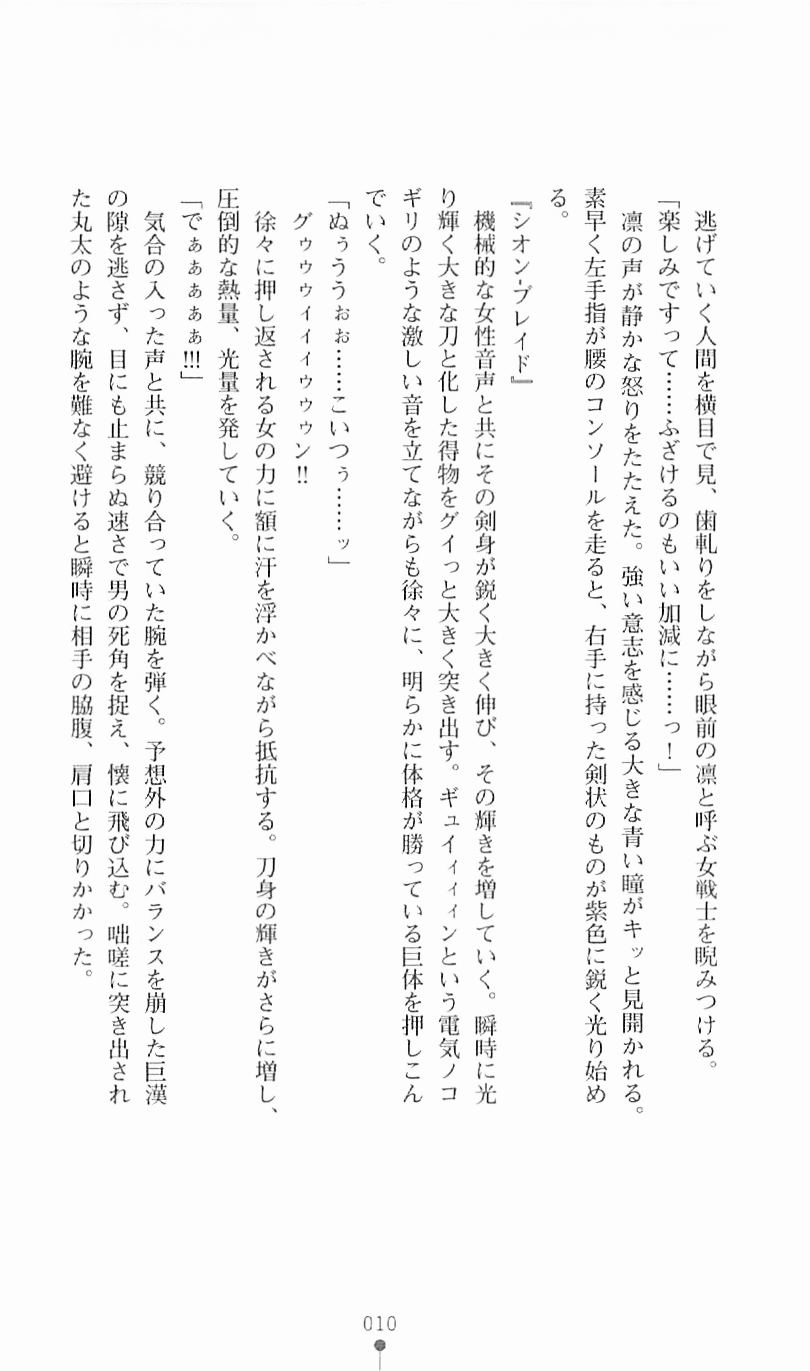 逃げていく人間を横目で見、歯軋りをしながら眼前の凛と呼ぶ女戦士を睨みつける。
「楽しみですって……ふざけるのもいい加減に……っ！」
凛の声が静かな怒りをたたえた。強い意志を感じる大きな青い瞳がキッと見開かれる。
素早く左手指が腰のコンソールを走ると、右手に持った剣状のものが紫色に鋭く光り始め
る。
『シオン-ブレイド』
機械的な女性音声と共にその剣身が鋭く大きく伸び、その輝きを増していく。瞬時に光
り輝く大きな刀と化した得物をグイっと大きく突き出す。ギュイィィィンという電気ノコ
ギリのような激しい音を立てながらも徐々に、明らかに体格が勝っている巨体を押しこん
でいく。
「ぬぅううぉぉ……こいつぅ……ッ」
グゥゥゥイイイゥゥゥン!!
徐々に押し返される女の力に額に汗を浮かべながら抵抗する。刀身の輝きがさらに増し、
圧倒的な熱量、光量を発していく。
「でぁぁぁぁぁ!!!」
気合の入った声と共に、競り合っていた腕を弾く。予想外の力にバランスを崩した巨漢
の隙を逃さず、目にも止まらぬ速さで男の死角を捉え、懐に飛び込む。咄嗟に突き出され
た丸太のような腕を難なく避けると瞬時に相手の脇腹、肩口と切りかかった。
010